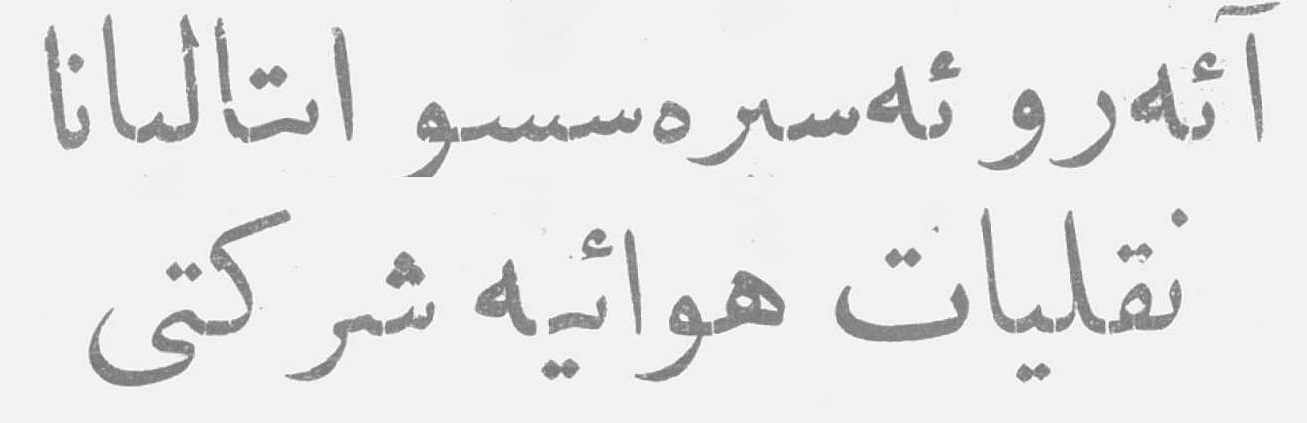 آئەرو ئەسپرەسسو اتالیانا
نقلیات هوائیه شرکتی